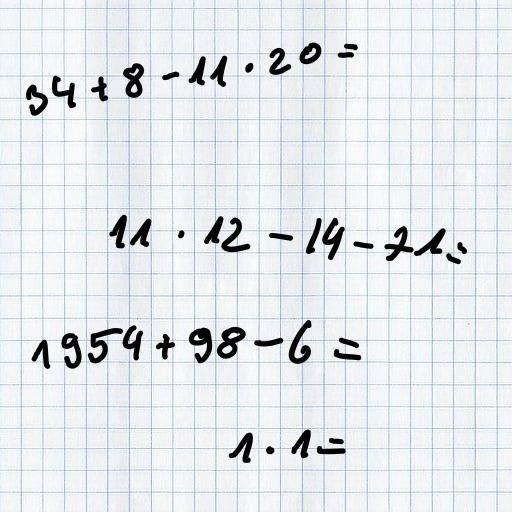 34+8-11·20=
11·12-14-71=
1954+98-6=
1·1=